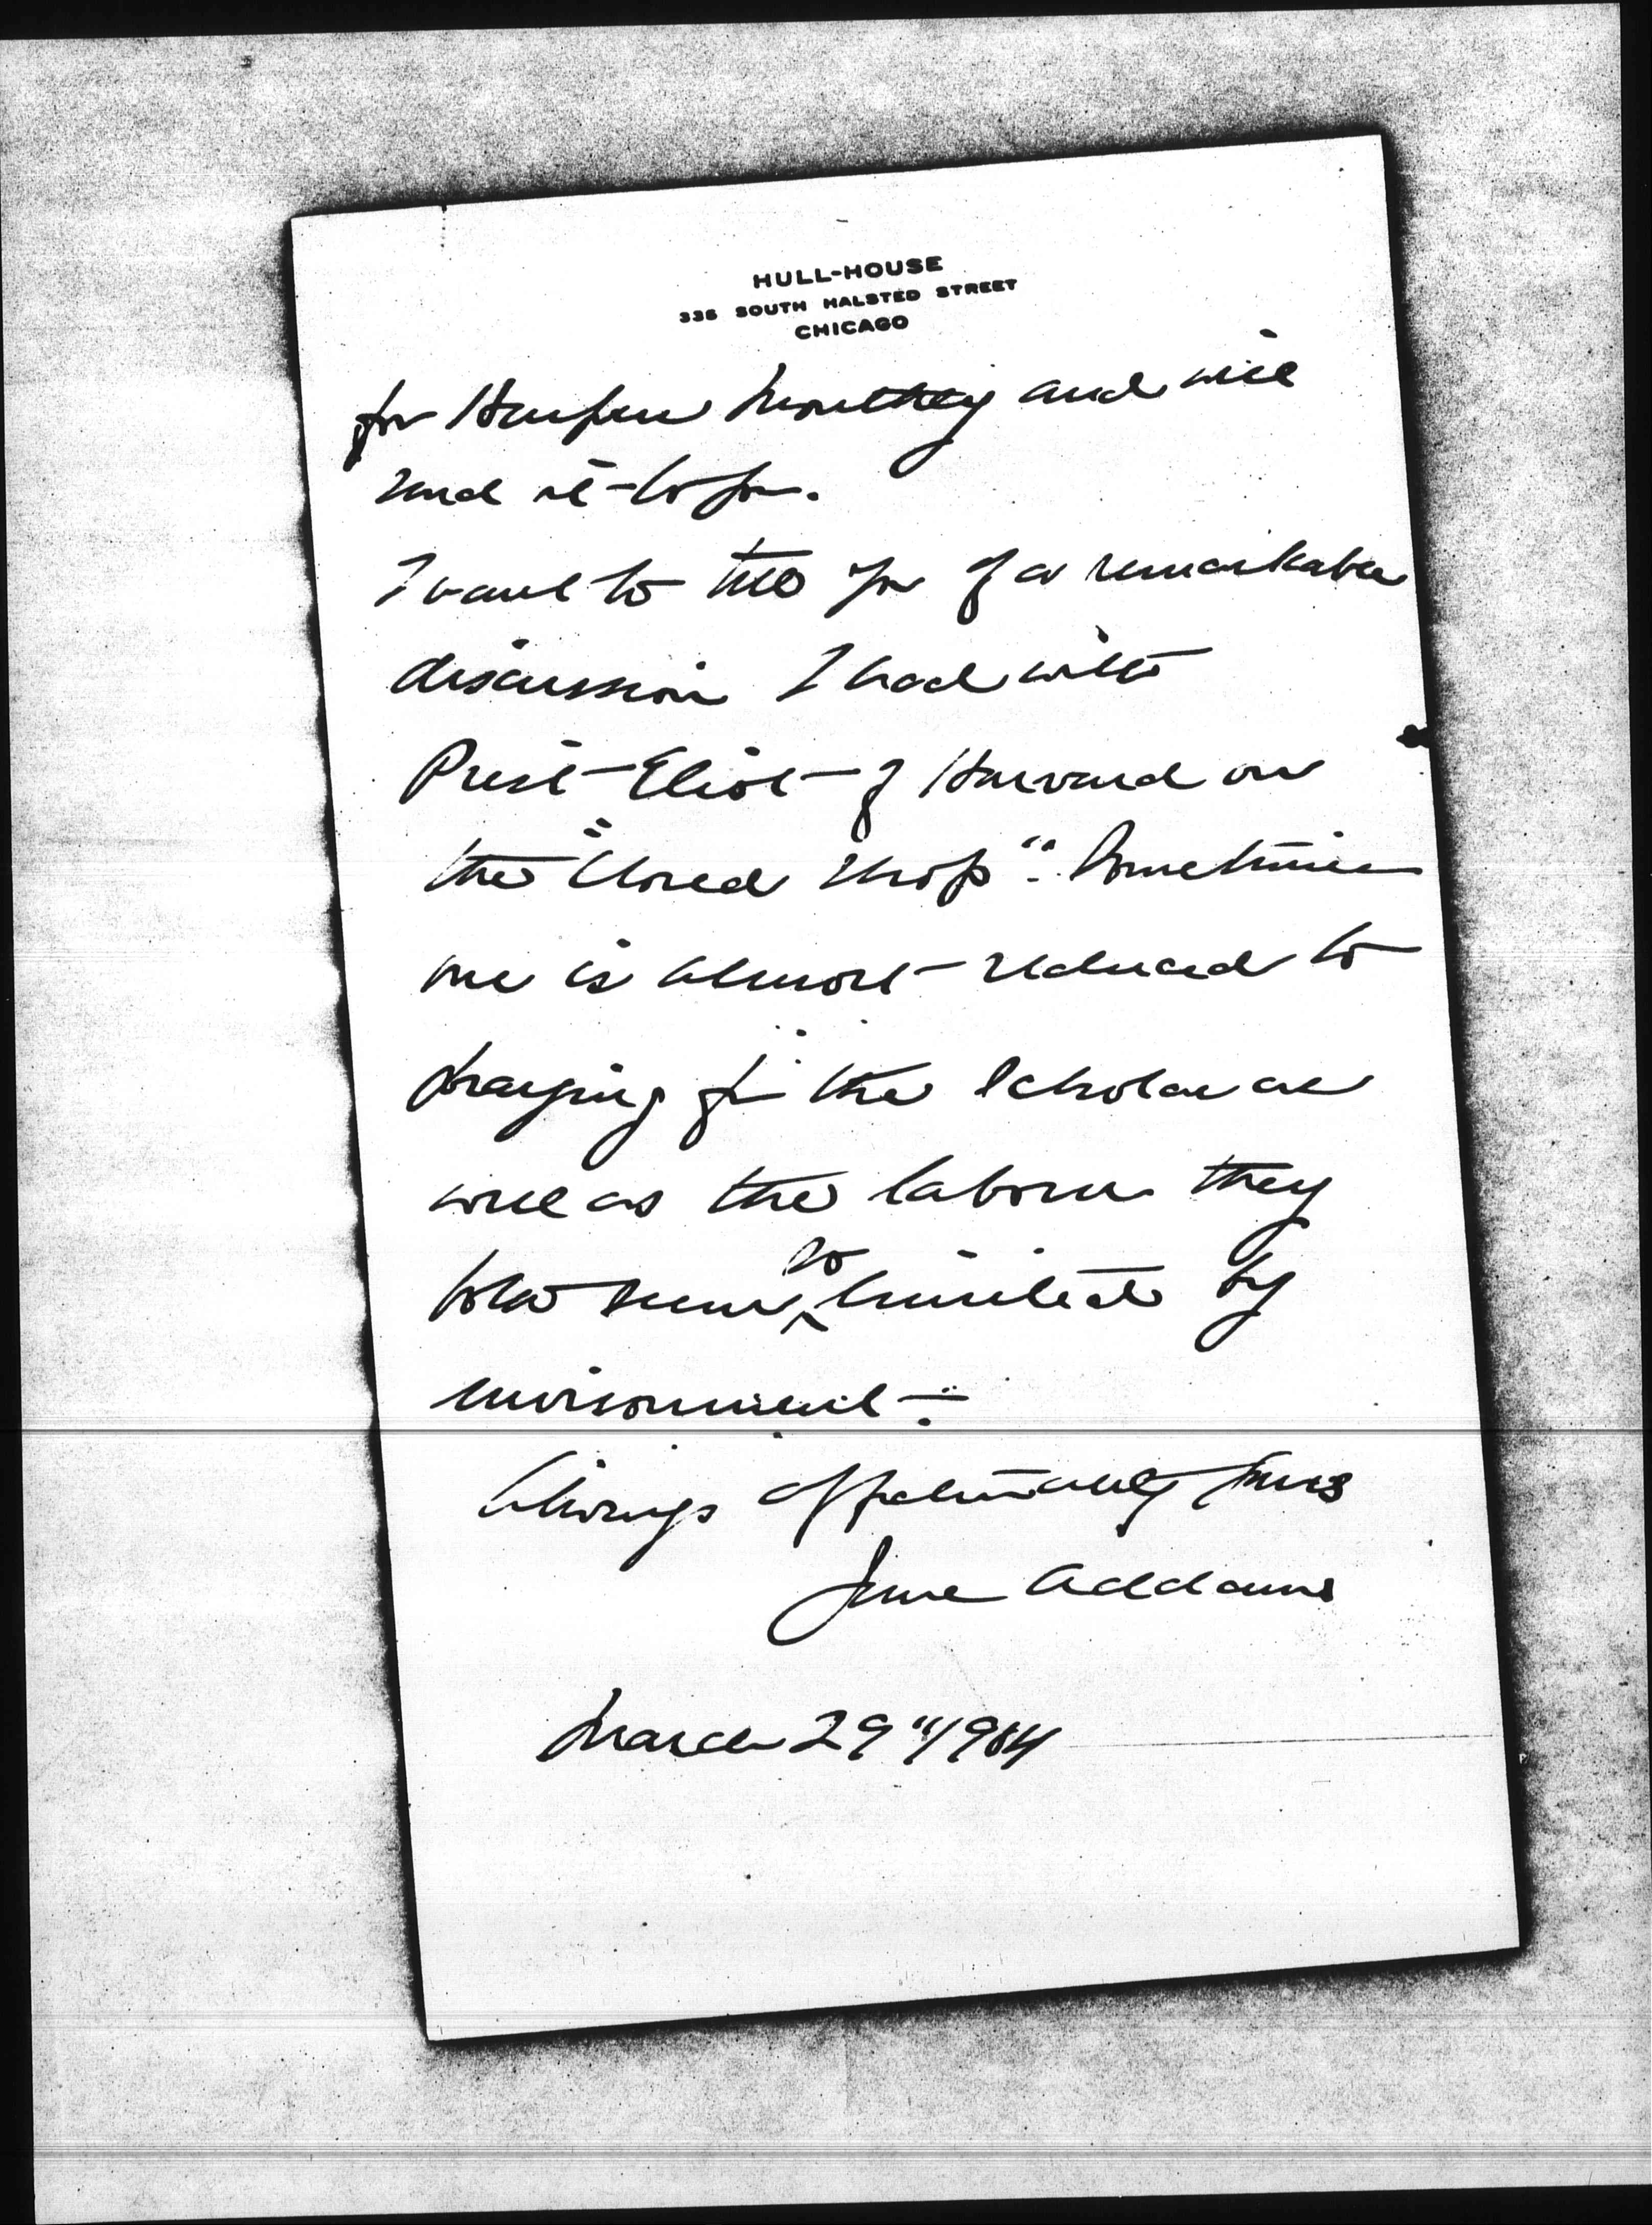 HULL-HOUSE
335 SOUTH HALSTED STREET
CHICAGO
for Harpers Monthly and will
send it to you.
I want to tell you of a remarkable
discussion I had with
Prest Eliot of Harvard on
the "Closed Shop". Sometimes
one is almost reduced to
praying for the scholar as
well as the laborer they
both seem so limited by
environment.
Always affectionately yours
Jane Addams
March 29" 1904